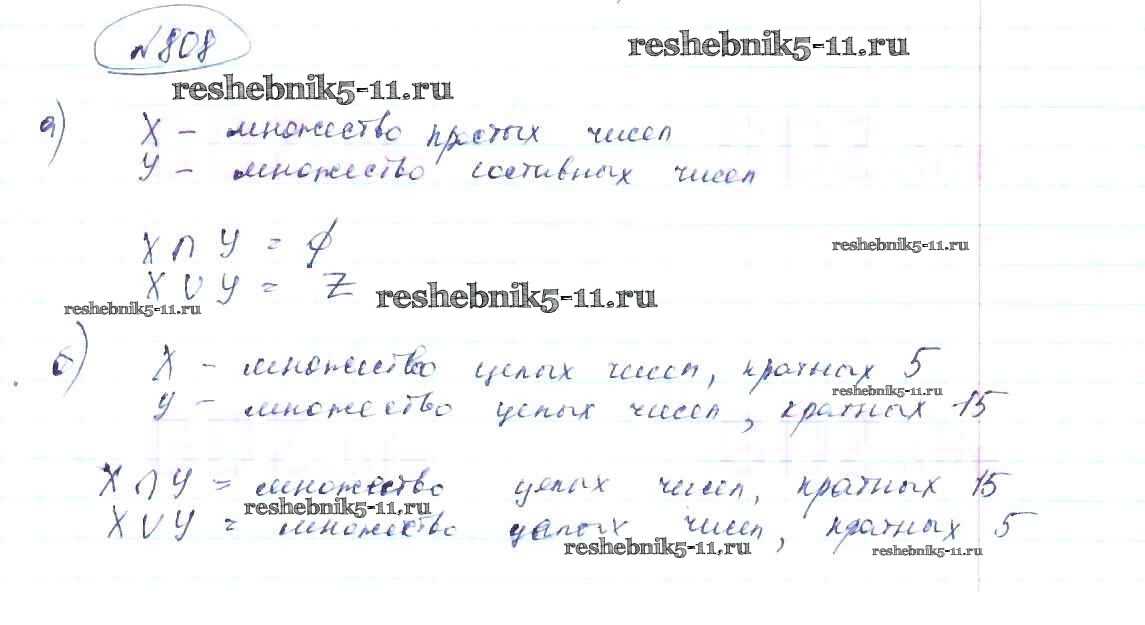 №808
reshebnik5-11.ru
reshebnik5-11.ru
а) X – множество простых чисел
У – множество составных чисел
X ∩ У = ∅
reshebnik5-11.ru
X ∪ У = Z
reshebnik5-11.ru
reshebnik5-11.ru
б) X – множество целых чисел, кратных 5
reshebnik5-11.ru
У – множество целых чисел, кратных 15
X ∩ У = множество целых чисел, кратных 15
reshebnik5-11.ru
X ∪ У = множество целых чисел, кратных 5
reshebnik5-11.ru
reshebnik5-11.ru